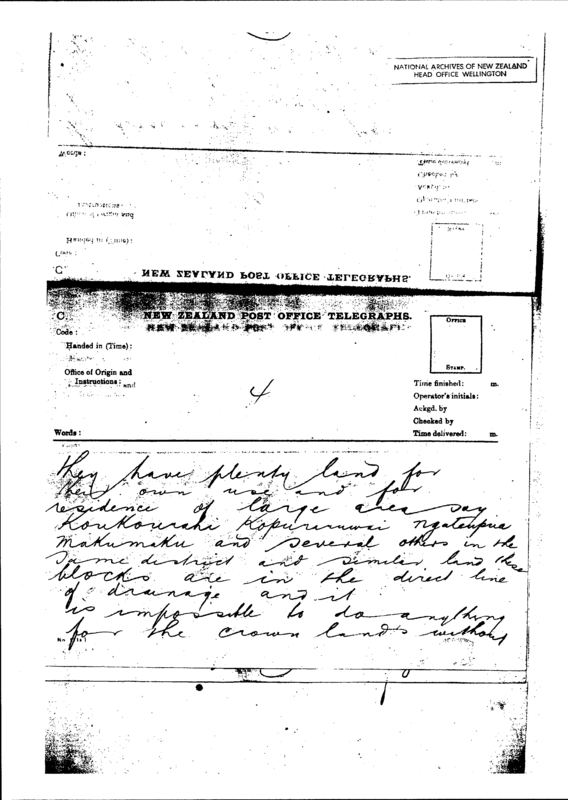 NATIONAL ARCHIVES OF NEW ZEALAND
HEAD OFFICE WELLINGTON
Words :
Handed in (Time) :
C.
NEW ZEALAND POST OFFICE TELEGRAPHS.
C.
NEW ZEALAND POST OFFICE TELEGRAPHS.
Code :
Handed in (Time) :
Office of Origin and
Instructions :
Words :
4
OFFICE
STAMP.
Time finished: m.
Operator's initials:
Ackgd. by
Checked by
Time delivered: m.
they have plenty land for
their own use and for
residence of large area say
Koukourahi Kopureruwai Ngatenpua
Makumaku and several others in the
Same district and similar land these
blocks are in the direct line
of drainage and it
is impossible to do anything
for the crown lands without